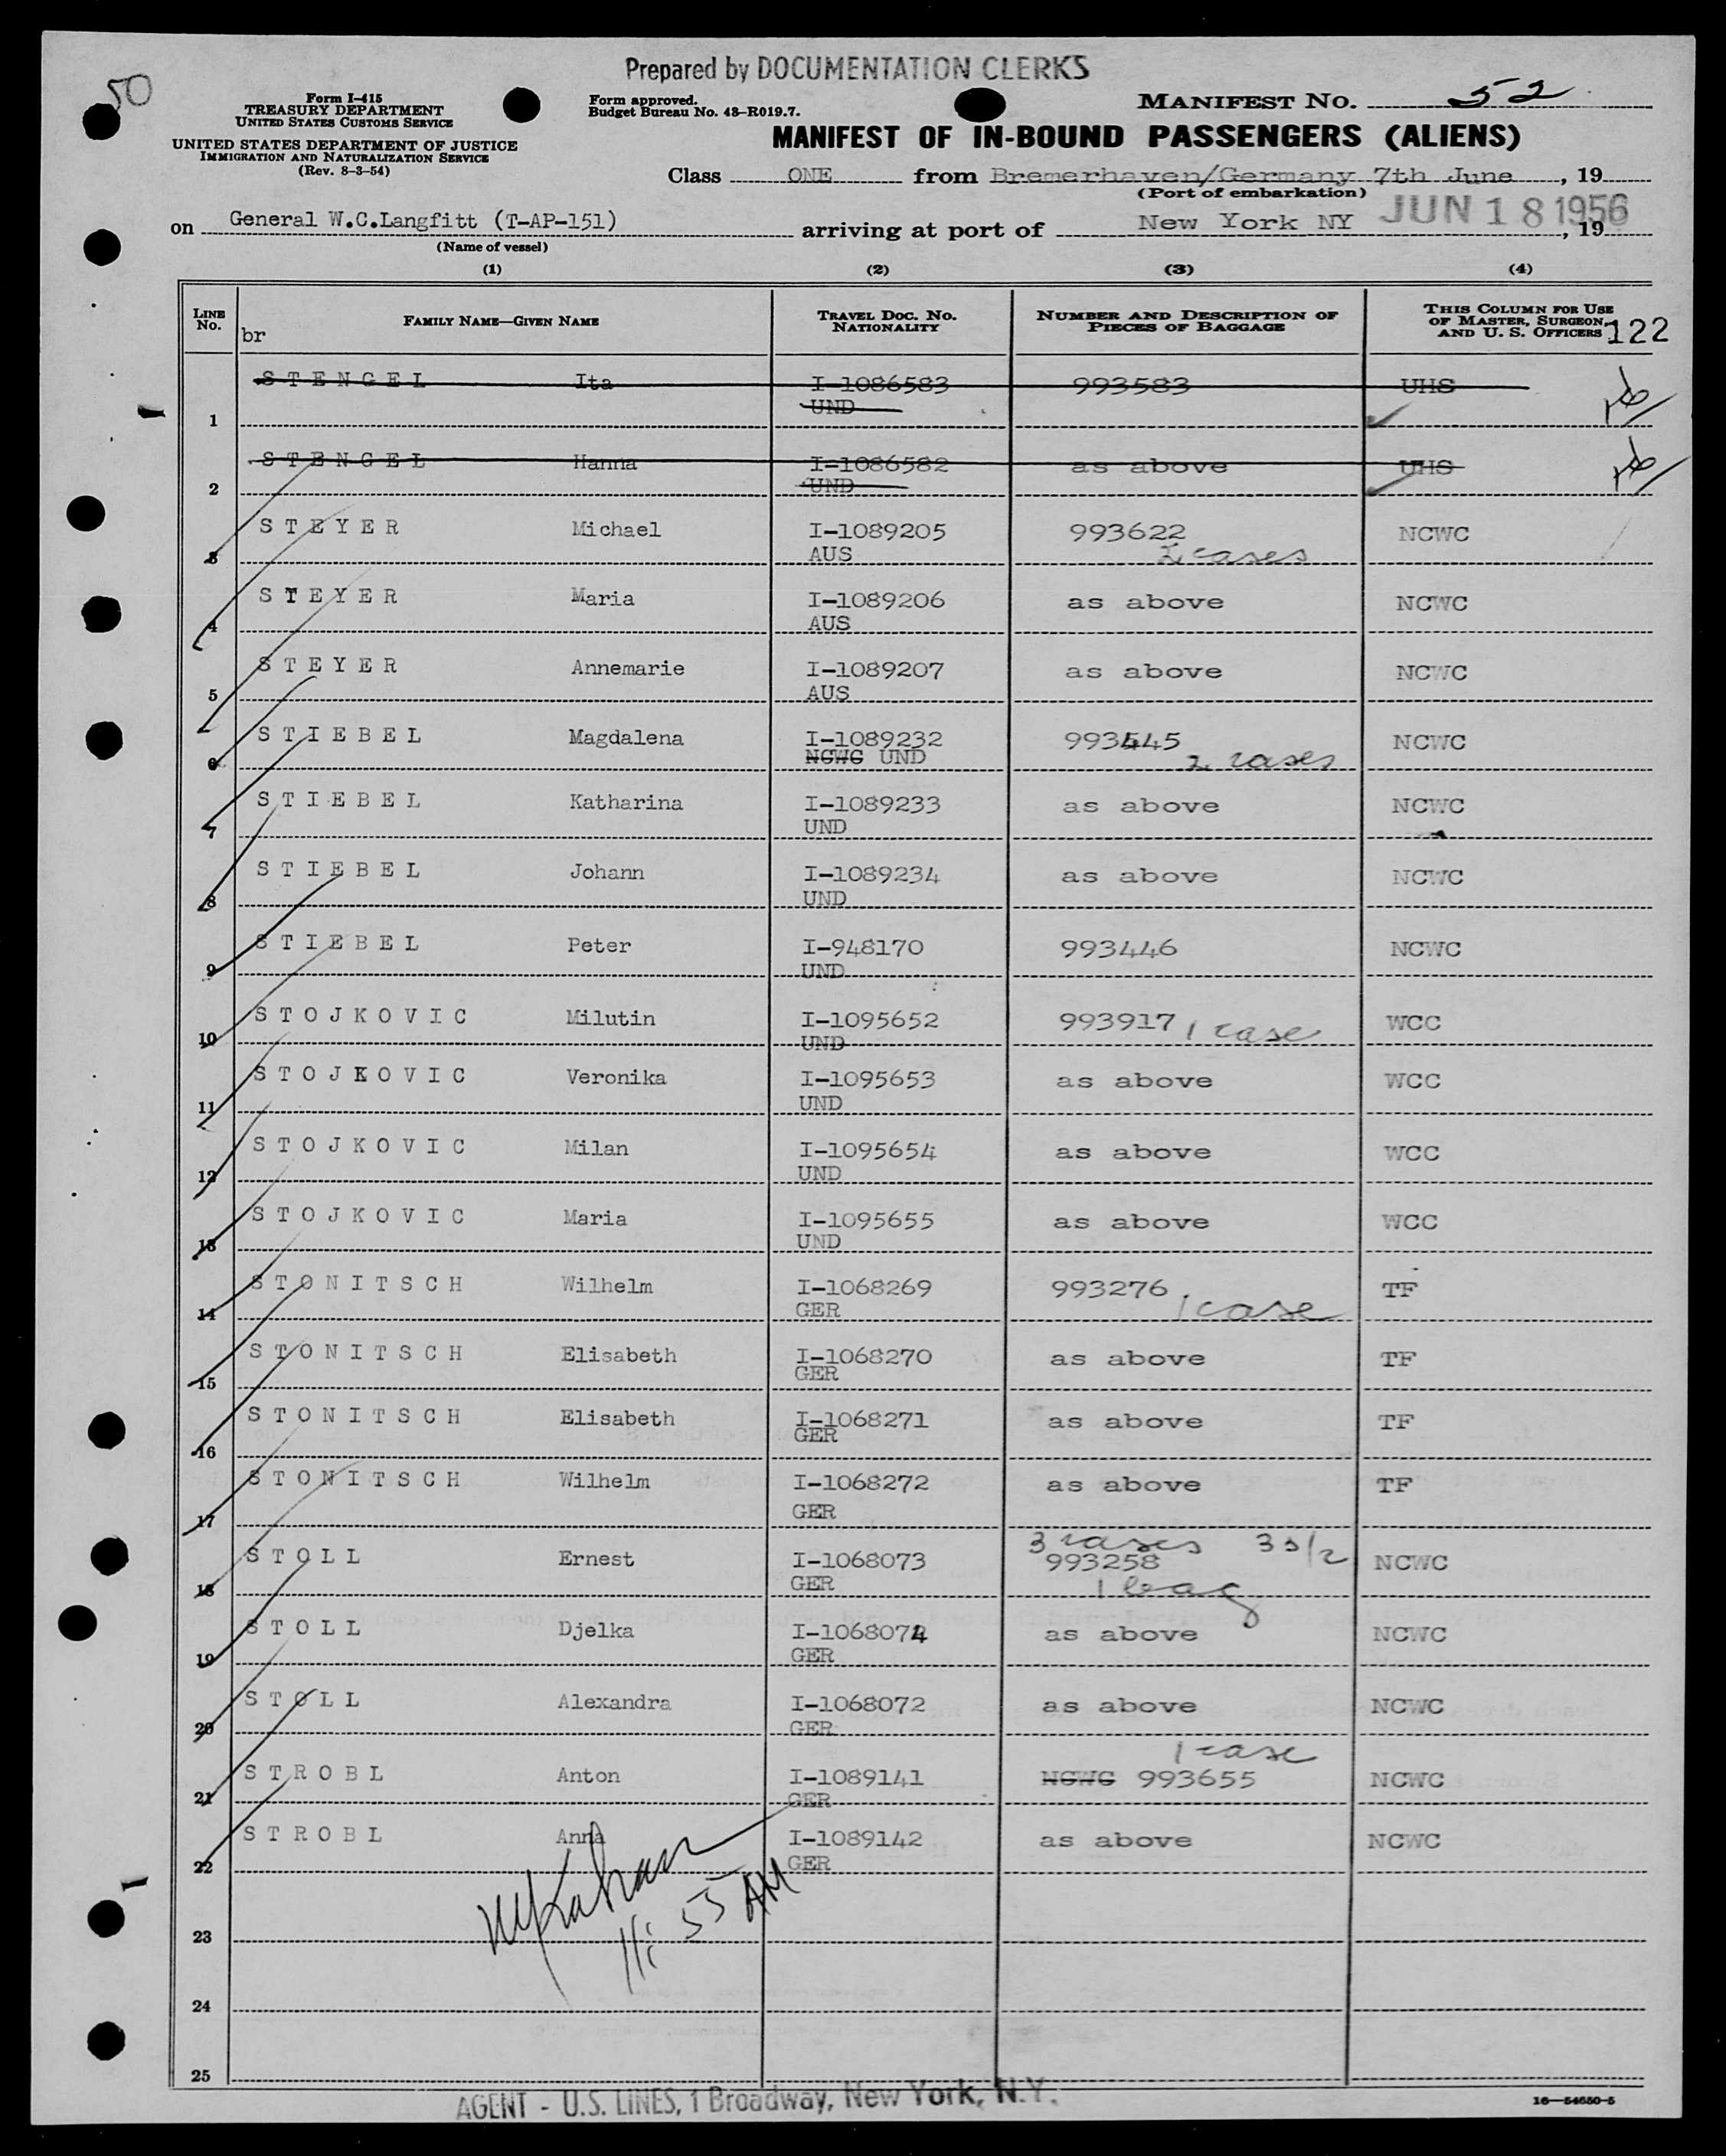 50
Prepared by DOCUMENTATION CLERKS
Form I-415
TREASURY DEPARTMENT
UNITED STATES CUSTOMS SERVICE
UNITED STATES DEPARTMENT OF JUSTICE
IMMIGRATION AND NATURALIZATION SERVICE
(Rev. 8-3-54)
Form approved.
Budget Bureau No. 43-R019.7.
MANIFEST NO. 52
MANIFEST OF IN-BOUND PASSENGERS (ALIENS)
Class ONE from Bremerhaven/Germany 7th June, 19
(Port of embarkation)
on General W.C.Langfitt (T-AP-151) arriving at port of New York NY JUN 18 1956, 19
(Name of vessel)
(1) (2) (3) (4)
LINE No. br FAMILY NAME—GIVEN NAME TRAVEL DOC. NO. NATIONALITY NUMBER AND DESCRIPTION OF PIECES OF BAGGAGE THIS COLUMN FOR USE OF MASTER, SURGEON, AND U. S. OFFICERS 122
S T E N G E L Ita I-1086583 993583 UHS
1 UND
S T E N G E L Hanna I-1086582 as above UHS
2 UND
S T E Y E R Michael I-1089205 993622 NCWC
3 AUS 2 cases
S T E Y E R Maria I-1089206 as above NCWC
4 AUS
S T E Y E R Annemarie I-1089207 as above NCWC
5 AUS
S T I E B E L Magdalena I-1089232 993445 NCWC
6 NCWC UND 2 cases
S T I E B E L Katharina I-1089233 as above NCWC
7 UND
S T I E B E L Johann I-1089234 as above NCWC
8 UND
S T I E B E L Peter I-948170 993446 NCWC
9 UND
S T O J K O V I C Milutin I-1095652 993917 1 case WCC
10 UND
S T O J K O V I C Veronika I-1095653 as above WCC
11 UND
S T O J K O V I C Milan I-1095654 as above WCC
12 UND
S T O J K O V I C Maria I-1095655 as above WCC
13 UND
S T O N I T S C H Wilhelm I-1068269 993276 TF
14 GER 1 case
S T O N I T S C H Elisabeth I-1068270 as above TF
15 GER
S T O N I T S C H Elisabeth I-1068271 as above TF
16 GER
S T O N I T S C H Wilhelm I-1068272 as above TF
17 GER
3 cases 33/2
S T O L L Ernest I-1068073 993258 NCWC
18 GER 1 bag
S T O L L Djelka I-1068074 as above NCWC
19 GER
S T O L L Alexandra I-1068072 as above NCWC
20 GER
1 case
S T R O B L Anton I-1089141 NCWC 993655 NCWC
21 GER
S T R O B L Anna I-1089142 as above NCWC
22 GER
11:55 AM
23
24
25
AGENT - U.S. LINES, 1 Broadway, New York, N.Y.
16—54650-5